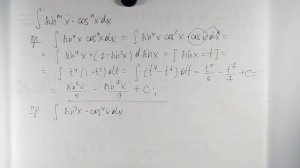 ∫ sinᵐx · cosⁿx dx
пр ∫ sin⁴x cos³x dx = ∫ sin⁴x cos²x cos x dx =
= ∫ sin⁴x · (1 - sin²x) d sin x = [ sin x = t ] =
= ∫ t⁴ (1 - t²) dt = ∫ (t⁴ - t⁶) dt = t⁵/5 - t⁷/7 + C =
= sin⁵x/5 - sin⁷x/7 + C ;
пр ∫ sin²x · cos⁴x dx